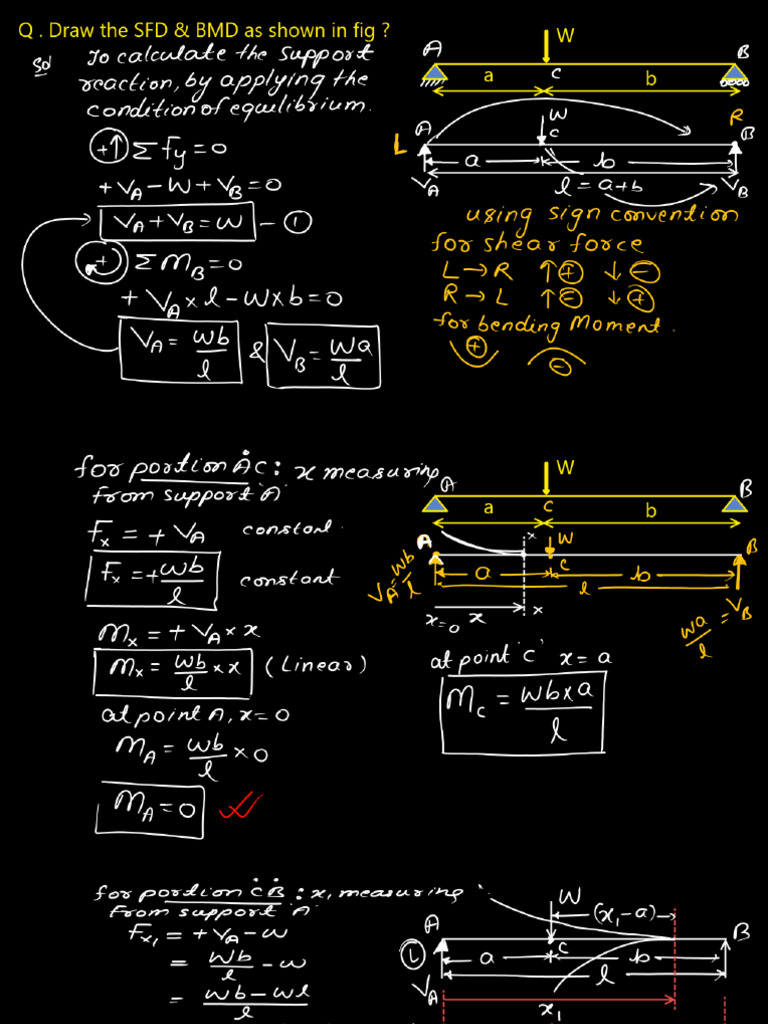 Q . Draw the SFD & BMD as shown in fig ?
Sol To calculate the support
reaction, by applying the
condition of equilibrium.
+↑ Σfy = 0
+VA - W + VB = 0
VA + VB = W - ①
+ ΣMB = 0
+ VA × l - W × b = 0
VA = wb/l & VB = Wa/l
W
A B
a c b
W
L A c B R
a b
VA l = a+b VB
using sign convention
for shear force
L → R ↑ ⊕ ↓ ⊖
R → L ↑ ⊖ ↓ ⊕
for bending Moment.
+ -
for portion AC : x measuring
from support 'A'
Fx = + VA constant.
Fx = + wb/l constant
Mx = + VA × x
Mx = wb/l × x (Linear)
at point A, x = 0
MA = wb/l × 0
MA = 0
W
A B
a c b
x W
A c B
VA = wb/l a b
l
wa/l = VB
x=0 x x
at point 'c' x = a
Mc = wb×a/l
for portion CB : x₁ measuring
from support 'A'
Fx₁ = + VA - w
= wb/l - w
= wb - wl/l
W (x₁-a)
A c B
L a b
l
VA
x₁